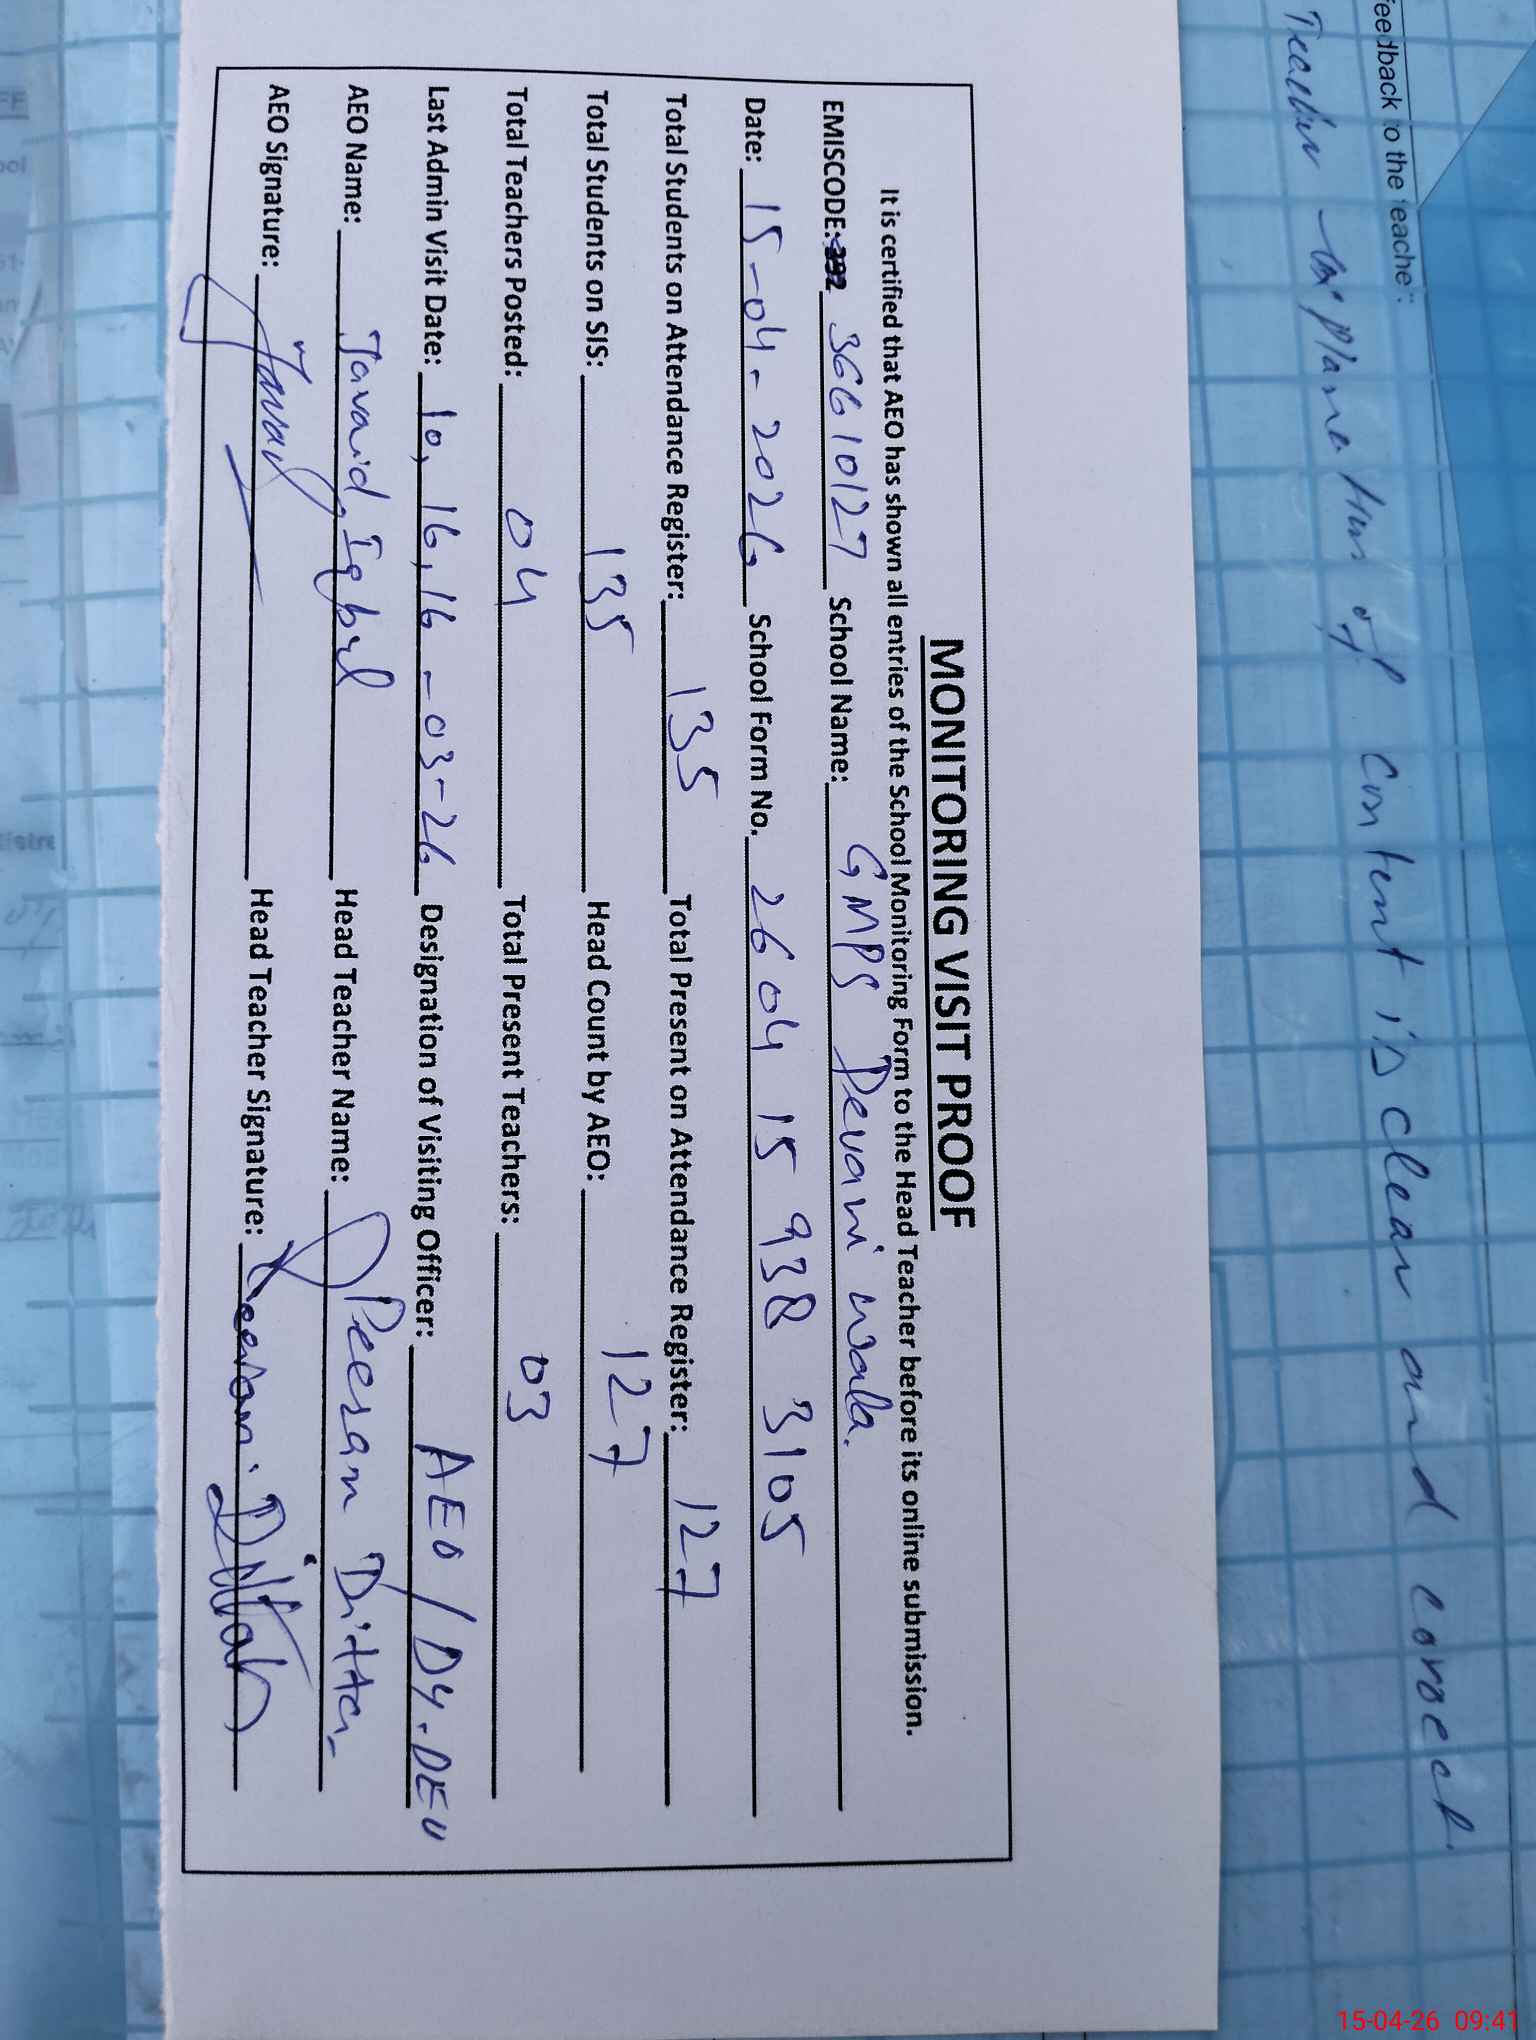 Feedback to the teacher:
Teacher explanation of content is clear and correct
MONITORING VISIT PROOF
It is certified that AEO has shown all entries of the School Monitoring Form to the Head Teacher before its online submission.
EMISCODE: 36610127 School Name: GMPS Devani wala.
Date: 15-04-2026 School Form No. 2604 15 938 3105
Total Students on Attendance Register: 135 Total Present on Attendance Register: 127
Total Students on SIS: 135 Head Count by AEO: 127
Total Teachers Posted: 04 Total Present Teachers: 03
Last Admin Visit Date: 10, 16, 16-03-26 Designation of Visiting Officer: AEO / DY. DEO
AEO Name: Javaid Iqbal Head Teacher Name: Peeran Ditta
AEO Signature: Javaid Head Teacher Signature: Peeran Dittah
15-04-26 09:41